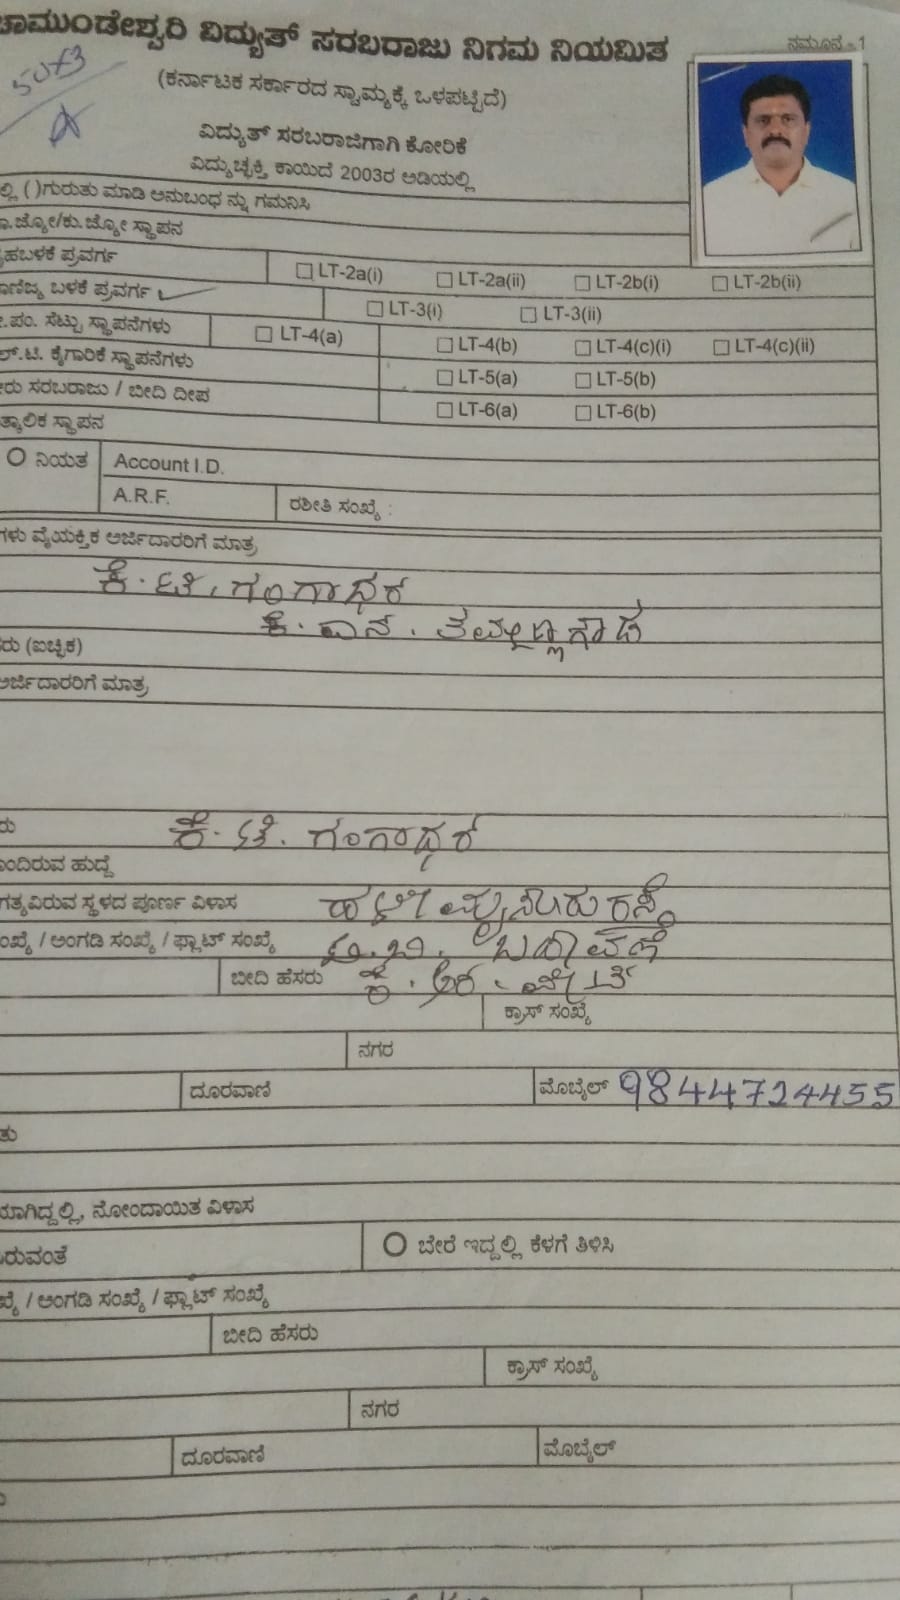 ಚಾಮುಂಡೇಶ್ವರಿ ವಿದ್ಯುತ್ ಸರಬರಾಜು ನಿಗಮ ನಿಯಮಿತ
ನಮೂನೆ - 1
(ಕರ್ನಾಟಕ ಸರ್ಕಾರದ ಸ್ವಾಮ್ಯಕ್ಕೆ ಒಳಪಟ್ಟಿದೆ)
ವಿದ್ಯುತ್ ಸರಬರಾಜಿಗಾಗಿ ಕೋರಿಕೆ
ವಿದ್ಯುಚ್ಛಕ್ತಿ ಕಾಯಿದೆ 2003ರ ಅಡಿಯಲ್ಲಿ
ಲ್ಲಿ ( )ಗುರುತು ಮಾಡಿ ಅನುಬಂಧ ನ್ನು ಗಮನಿಸಿ
ಾ.ಜ್ಯೋ/ಕು.ಜ್ಯೋ ಸ್ಥಾಪನ
ೃಹಬಳಕೆ ಪ್ರವರ್ಗ LT-2a(i) LT-2a(ii) LT-2b(i) LT-2b(ii)
ಾಣಿಜ್ಯ ಬಳಕೆ ಪ್ರವರ್ಗ LT-3(i) LT-3(ii)
.ಪಂ. ಸೆಟ್ಟು ಸ್ಥಾಪನೆಗಳು LT-4(a) LT-4(b) LT-4(c)(i) LT-4(c)(ii)
ಲ್.ಟಿ. ಕೈಗಾರಿಕೆ ಸ್ಥಾಪನೆಗಳು LT-5(a) LT-5(b)
ೀರು ಸರಬರಾಜು / ಬೀದಿ ದೀಪ LT-6(a) LT-6(b)
ತ್ಕಾಲಿಕ ಸ್ಥಾಪನ
ನಿಯತ Account I.D.
A.R.F. ರಶೀತಿ ಸಂಖ್ಯೆ :
ಗಳು ವೈಯಕ್ತಿಕ ಅರ್ಜಿದಾರರಿಗೆ ಮಾತ್ರ
ಕೆ. ಟಿ. ಗಂಗಾಧರ
ಕೆ. ಎನ್. ತಮ್ಮಣ್ಣಗೌಡ
ರು (ಐಚ್ಛಿಕ)
ಅರ್ಜಿದಾರರಿಗೆ ಮಾತ್ರ
ರು ಕೆ. ಟಿ. ಗಂಗಾಧರ
ೊಂದಿರುವ ಹುದ್ದೆ
ಗತ್ಯವಿರುವ ಸ್ಥಳದ ಪೂರ್ಣ ವಿಳಾಸ ರಸ್ತೆ
ಂಖ್ಯೆ / ಅಂಗಡಿ ಸಂಖ್ಯೆ / ಫ್ಲಾಟ್ ಸಂಖ್ಯೆ ಬಡಾವಣೆ
ಬೀದಿ ಹೆಸರು ಕೆ. ಆರ್. ಪೇಟೆ
ಕ್ರಾಸ್ ಸಂಖ್ಯೆ
ನಗರ
ದೂರವಾಣಿ ಮೊಬೈಲ್ 9844724455
ತು
ಯಾಗಿದ್ದಲ್ಲಿ, ನೋಂದಾಯಿತ ವಿಳಾಸ
ಿರುವಂತೆ ಬೇರೆ ಇದ್ದಲ್ಲಿ ಕೆಳಗೆ ತಿಳಿಸಿ
ಖ್ಯೆ / ಅಂಗಡಿ ಸಂಖ್ಯೆ / ಫ್ಲಾಟ್ ಸಂಖ್ಯೆ
ಬೀದಿ ಹೆಸರು
ಕ್ರಾಸ್ ಸಂಖ್ಯೆ
ನಗರ
ದೂರವಾಣಿ ಮೊಬೈಲ್